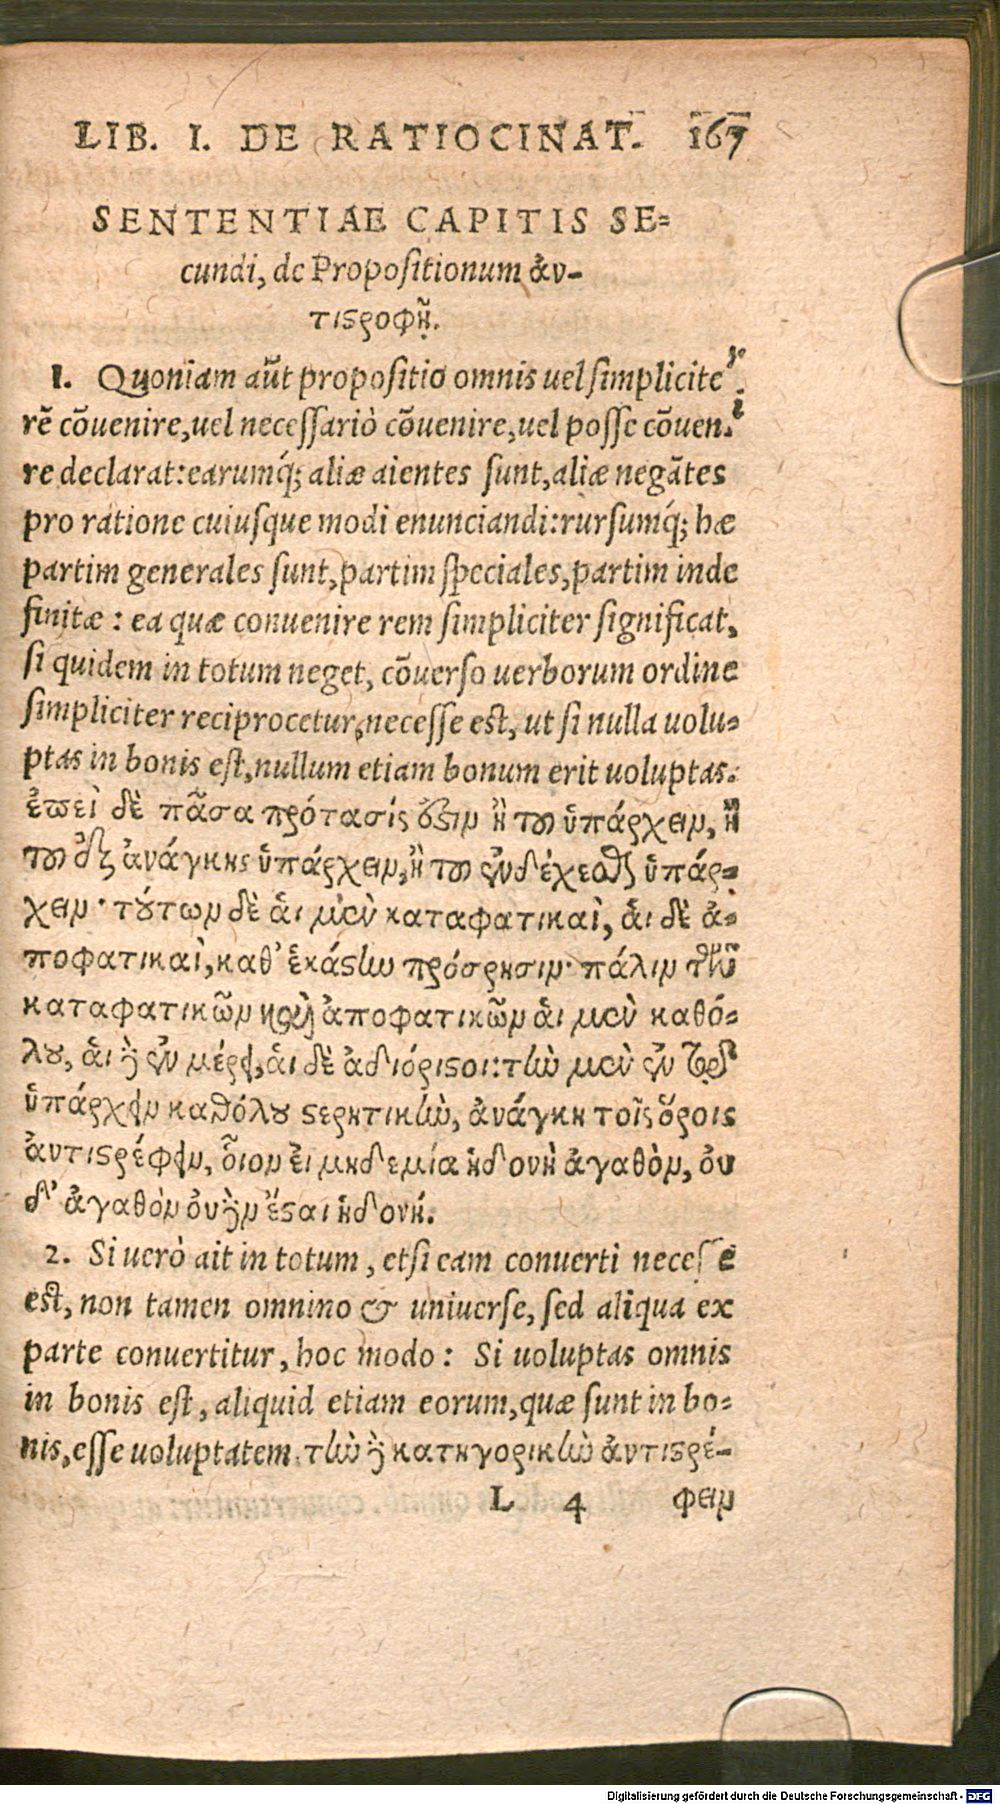 LIB. I. DE RATIOCINAT. 167
SENTENTIAE CAPITIS SE=
cundi, de Propositionum ἀν-
τιϛροφῇ.
1. Quoniam aũt propositio omnis uel simpliciter
rẽ cõuenire, uel necessariò cõuenire, uel posse cõueni
re declarat: earumq́; aliæ aientes sunt, aliæ negãtes
pro ratione cuiusque modi enunciandi: rursumq́; hæ
partim generales sunt, partim speciales, partim inde
finitæ: ea quæ conuenire rem simpliciter significat,
si quidem in totum neget, cõuerso uerborum ordine
simpliciter reciprocetur, necesse est, ut si nulla uolu=
ptas in bonis est, nullum etiam bonum erit uoluptas.
ἐπεὶ δὲ πᾶσα πρότασίς ὅξιν ἢ τοῦ ὑπάρχειν, ἢ
τοῦ ἐξ ἀνάγκης ὑπάρχειν, ἢ τοῦ ἐνδέχεσθαι ὑπάρ=
χειν· τούτων δὲ ἁι μὲν καταφατικαὶ, ἁι δὲ ἀ=
ποφατικαὶ, καθ’ ἑκάϛlω πρόσρησιν· πάλιν τῶν
καταφατικῶν καὶ ἀποφατικῶν ἁι μὲν καθό=
λου, ἁι δὲ ἐν μέρει, ἁι δὲ ἀδιόριϛοι: τlὼ μὲν ἐν τῷ
ὑπάρχειν καθόλου ϛερητικlὼ, ἀνάγκη τοῖς ὅροις
ἀντιϛρέφειν, ὅιον ἐι μηδεμία ἡδονὴ ἀγαθὸν, ὀυ
δ’ ἀγαθὸν ὀυδὲν ἔϛαι ἡδονή.
2. Si uerò ait in totum, etsi eam conuerti necesse
est, non tamen omnino & uniuerse, sed aliqua ex
parte conuertitur, hoc modo: Si uoluptas omnis
in bonis est, aliquid etiam eorum, quæ sunt in bo=
nis, esse uoluptatem. τlὼ δὲ κατηγορικlὼ ἀντιϛρέ-
L 4 φειν
Digitalisierung gefördert durch die Deutsche Forschungsgemeinschaft - DFG